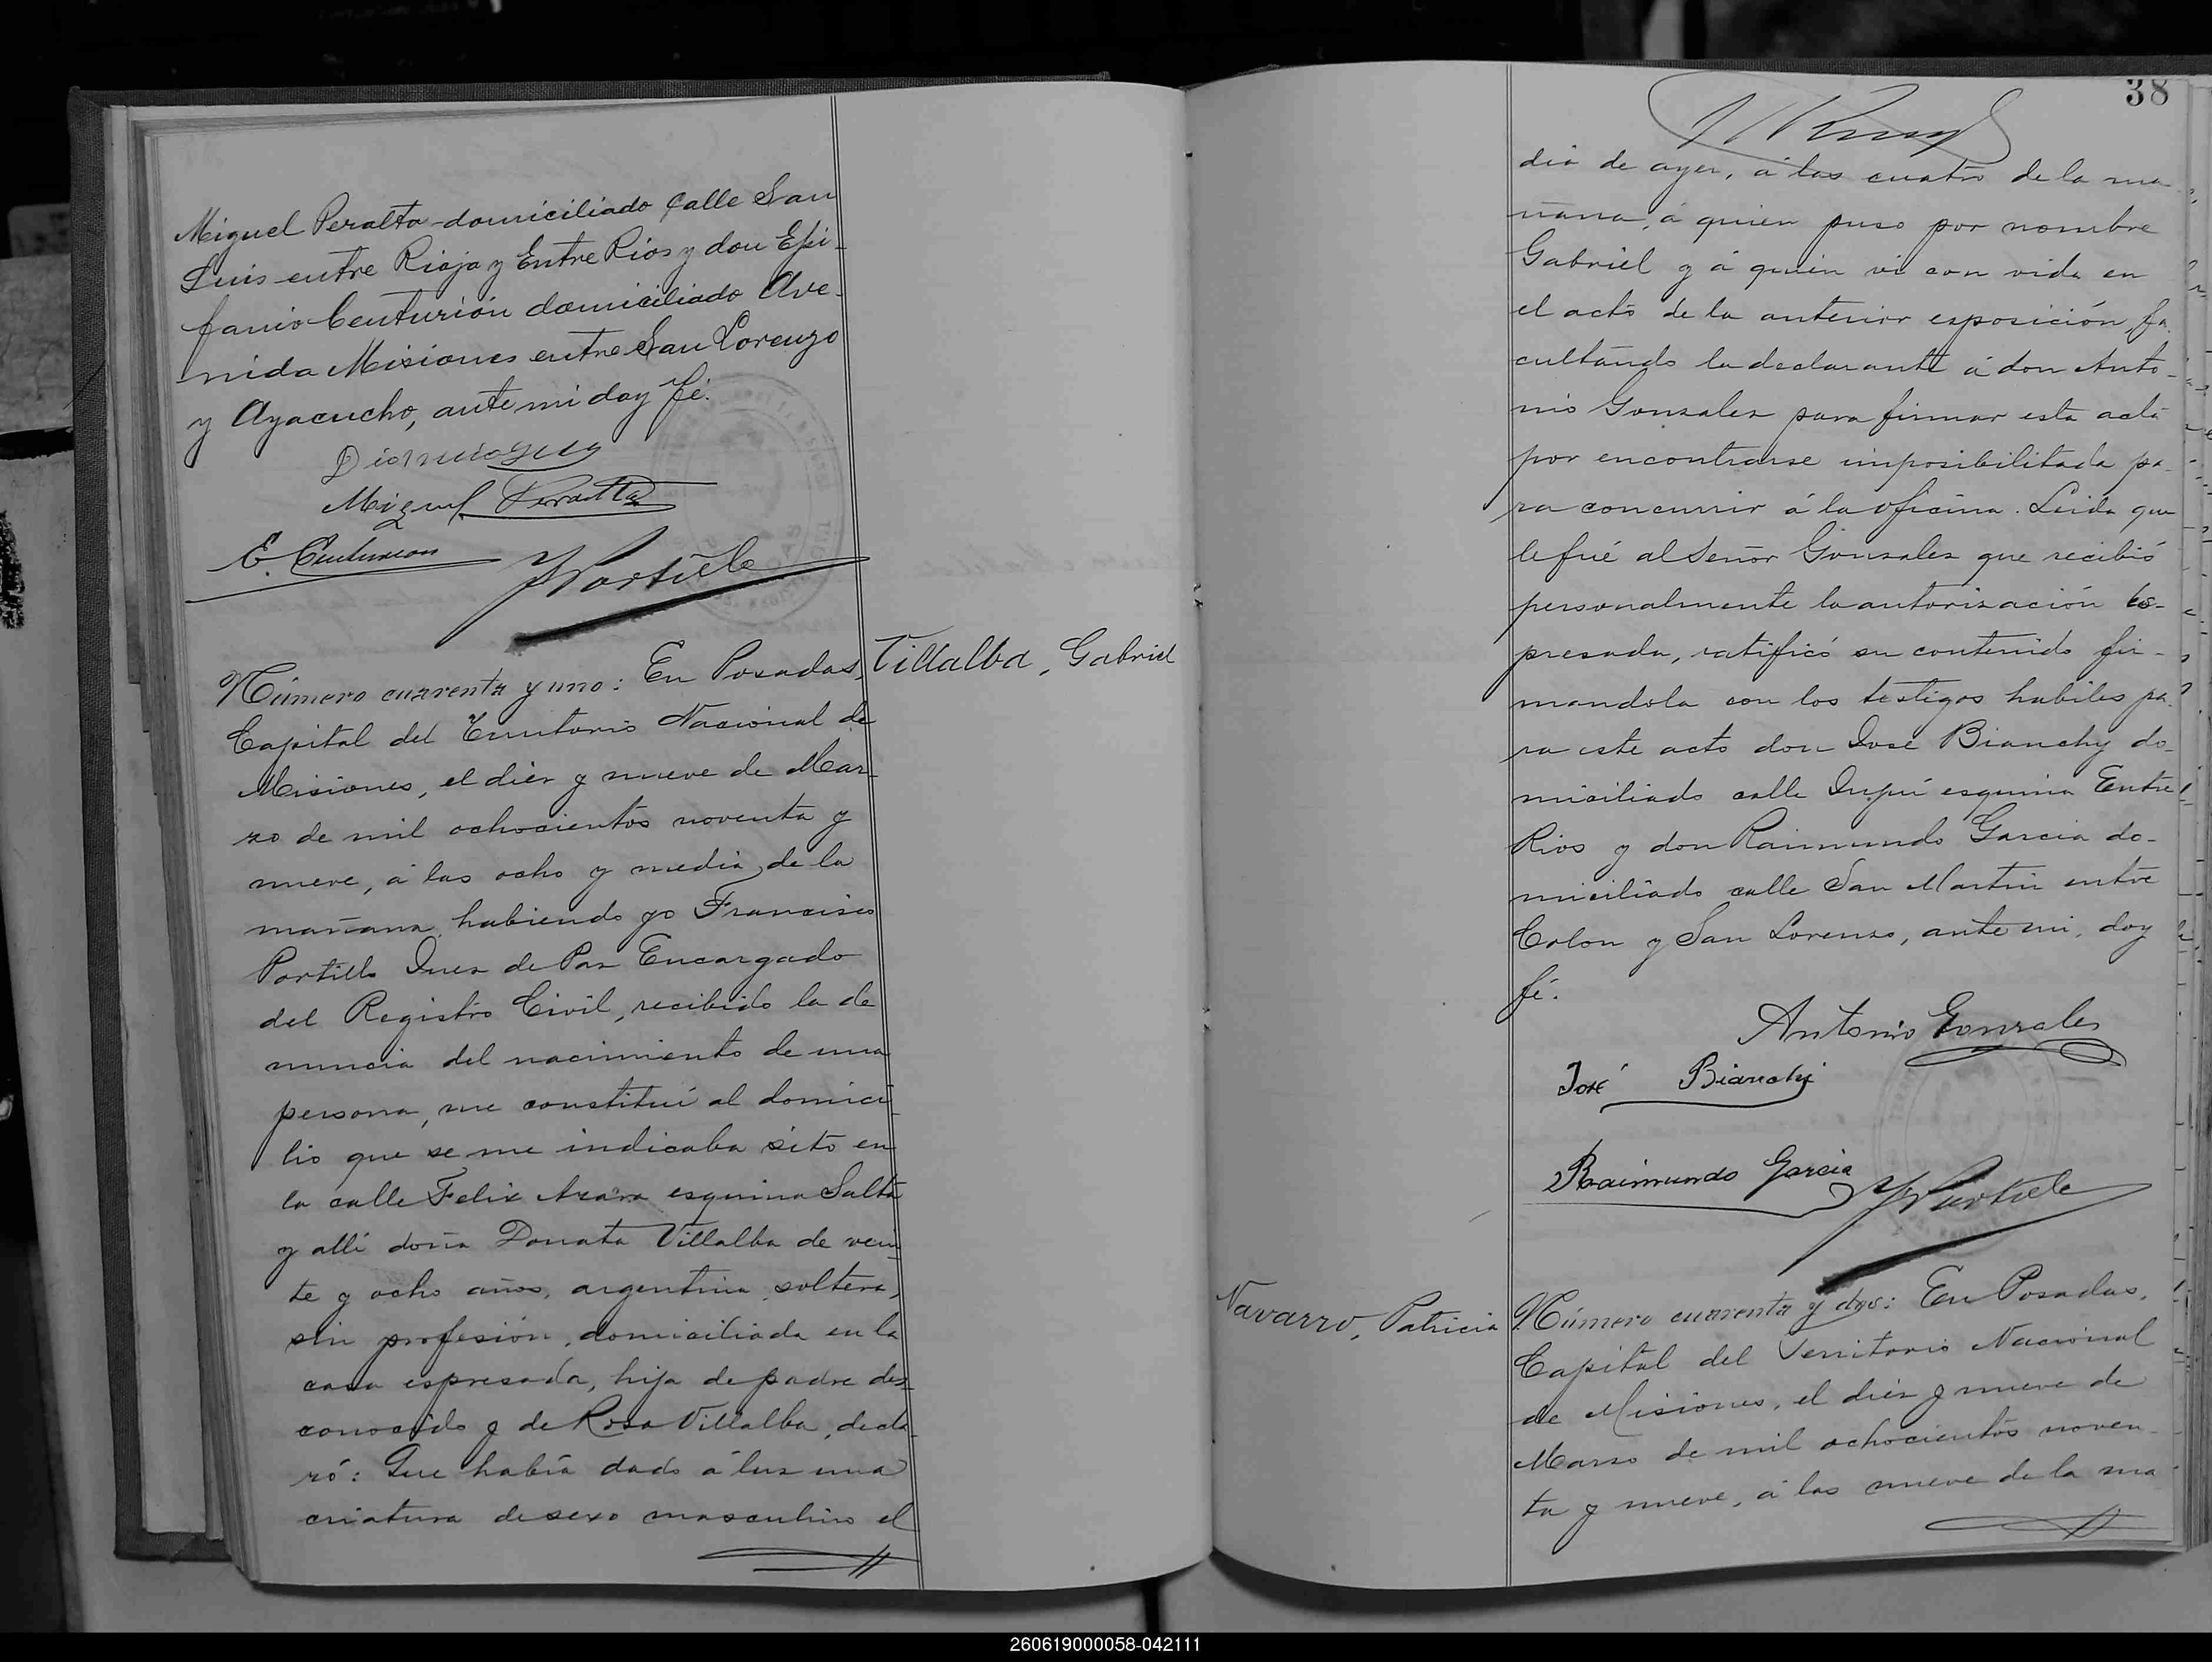 Miguel Peralta domiciliado calle San
Luis entre Rioja y Entre Rios y don Epi-
fanio Centurión domiciliado Ave-
nida Misiones entre San Lorenzo
y Ayacucho, ante mi doy fé.
Miguel Peralta
E. Centurion
Número cuarenta y uno: En Posadas,
Villalba, Gabriel
Capital del Territorio Nacional de
Misiones, el diez y nueve de Mar-
zo de mil ochocientos noventa y
nueve, á las ocho y media de la
mañana, habiendo yo Francisco
Portillo Juez de Paz Encargado
del Registro Civil, recibido la de
nuncia del nacimiento de una
persona, me constituí al domici-
lio que se me indicaba sito en
la calle Felix Azara esquina Salta
y allí doña Donata Villalba de vein
te y ocho años, argentina, soltera,
sin profesión, domiciliada en la
casa espresada, hija de padre des-
conocido y de Rosa Villalba, decla-
ró: Que había dado á luz una
criatura de sexo masculino el
38
dia de ayer, á las cuatro de la ma
ñana, á quien puso por nombre
Gabriel y á quien vi con vida en
el acto de la anterior esposición, fa
cultando la declarante á don Anto-
nio Gonzalez para firmar esta acta
por encontrarse imposibilitada pa-
ra concurrir á la oficina. Leida que
le fué al Señor Gonzalez que recibió
personalmente la autorización es-
presada, ratificó su contenido fir-
mandola con los testigos habiles pa-
ra este acto don José Bianchy do-
miciliado calle Tupuí esquina Entre
Rios y don Raimundo Garcia do-
miciliado calle San Martin entre
Colon y San Lorenzo, ante mi, doy
fé.
Antonio Gonzales
José Bianchi
Raimundo Garcia
Navarro, Patricia
Número cuarenta y dos: En Posadas,
Capital del Territorio Nacional
de Misiones, el diez y nueve de
Marzo de mil ochocientos noven-
ta y nueve, á las nueve de la ma
260619000058-042111